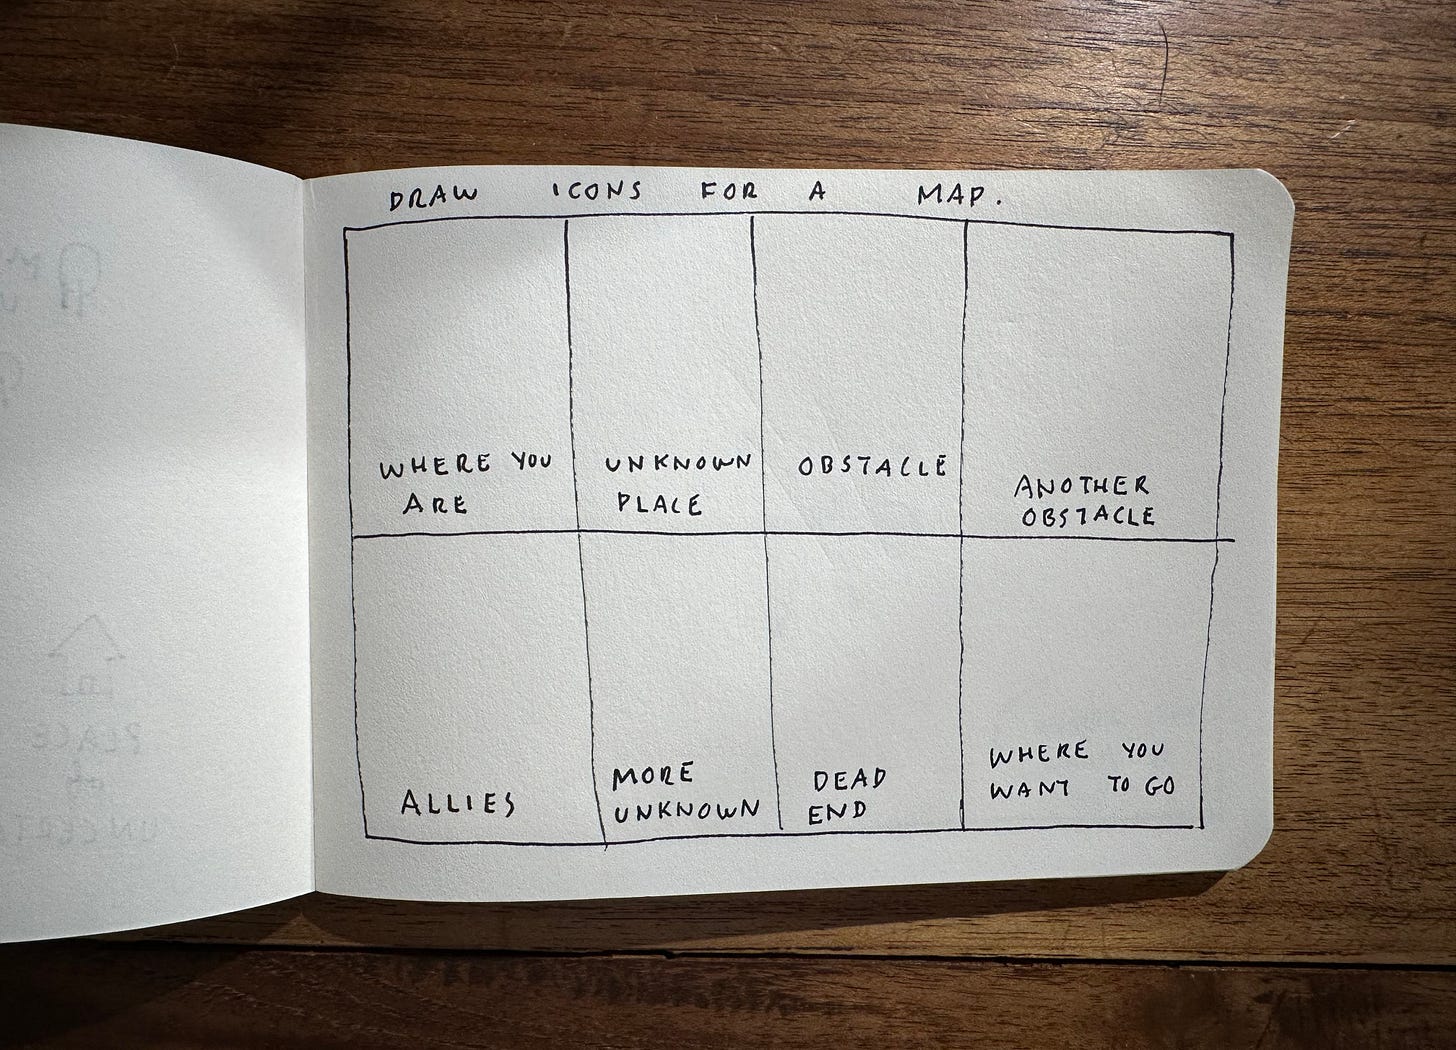 DRAW ICONS FOR A MAP.
WHERE YOU
ARE
UNKNOWN
PLACE
OBSTACLE
ANOTHER
OBSTACLE
ALLIES
MORE
UNKNOWN
DEAD
END
WHERE YOU
WANT TO GO